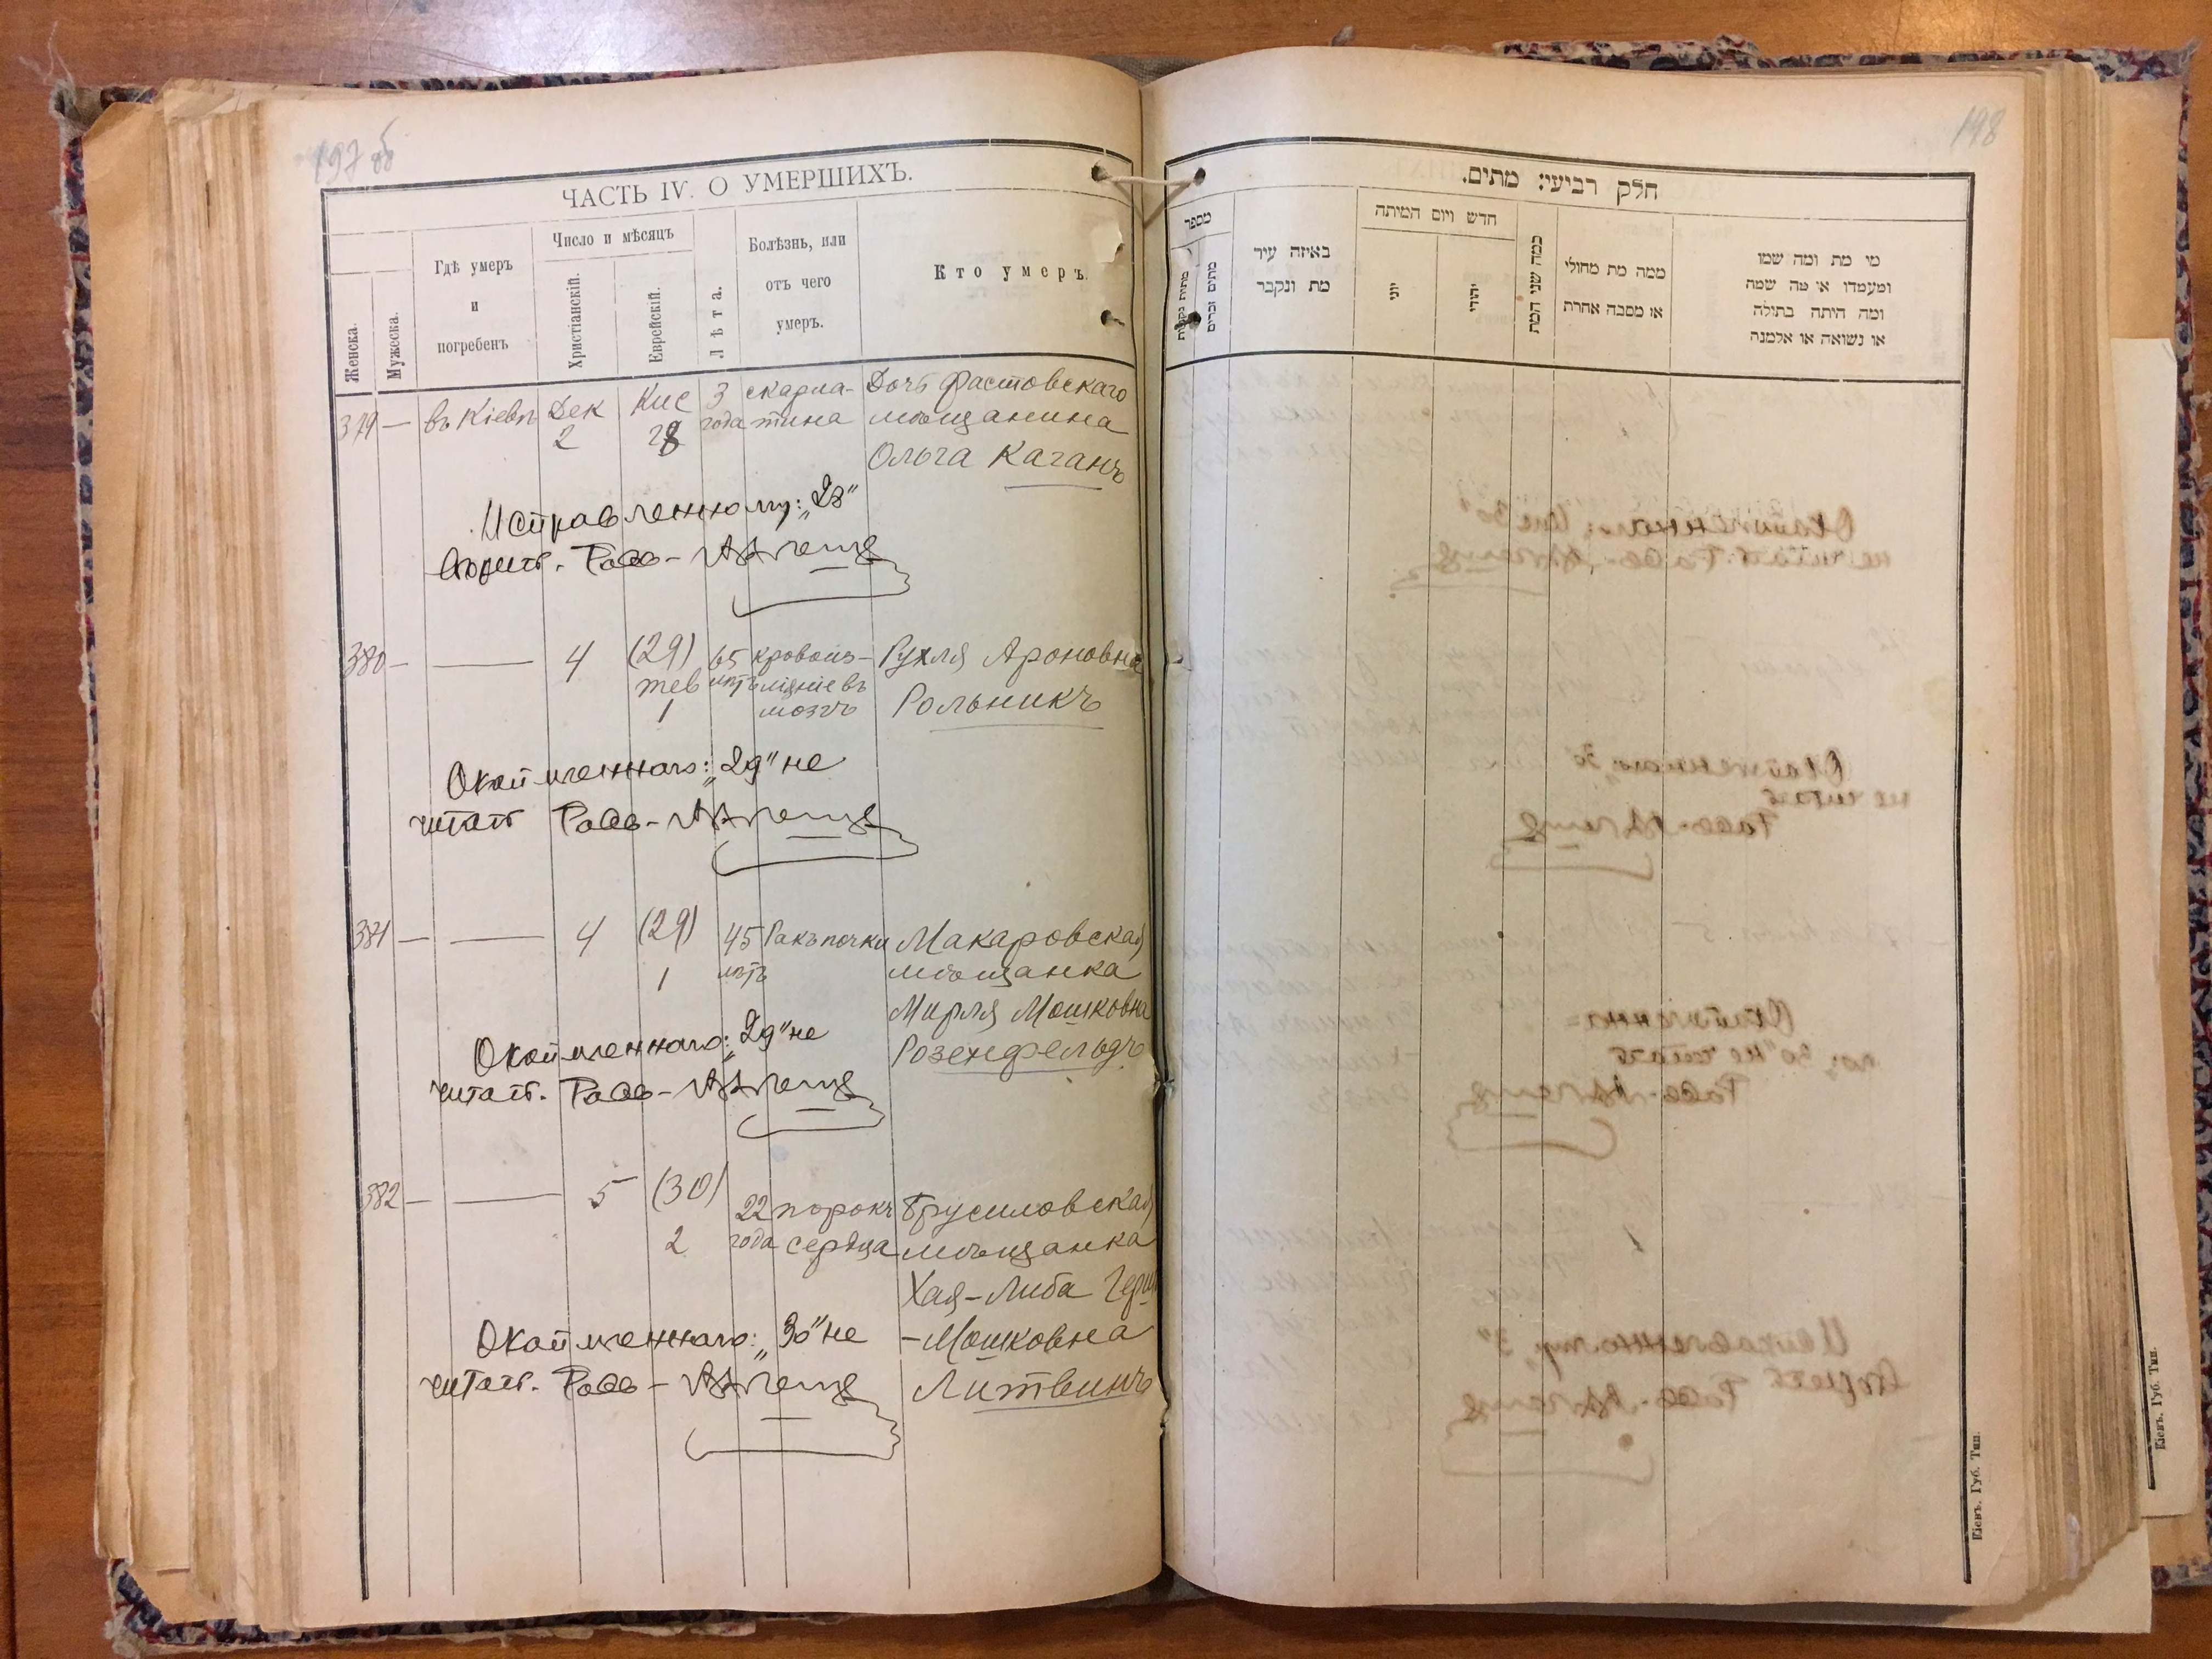 197 об
ЧАСТЬ IV. О УМЕРШИХЪ.
Женска.
Мужеска.
Гдѣ умеръ
и
погребенъ
Число и мѣсяцъ
Христіанскій.
Еврейскій.
Лѣта.
Болѣзнь, или
отъ чего
умеръ.
Кто умеръ.
379 — въ Кіевѣ Дек Кис 3 скарла- Дочь Фастовскаго
2 28 года тина мѣщанина
Ольга Каганъ
Исправленному: „28"
вѣрить. Равв-
380 — — 4 (29) 65 кровоиз- Рухля Ароновна
тев лѣтъ ліяніе въ
1 мозгъ Рольникъ
Окаймленнаго: „29" не
читать Равв-
381 — — 4 (29) 45 Ракъ почки Макаровская
1 лѣтъ мѣщанка
Мирля Мошковна
Розенфельдъ
Окаймленнаго: „29" не
читать. Равв-
382 — — 5 (30) 22 порокъ Брусиловская
2 года сердца мѣщанка
Хая-Либа Герш
-Мошковна
Литвинъ
Окаймленнаго: „30" не
читать. Равв-
198
חלק רביעי: מתים.
מספר
מתות נקבות
מתים זכרים
באיזה עיר
מת ונקבר
חדש ויום המיתה
יוני
יהודי
כמה שני המת
ממה מת מחולי
או מסבה אחרת
מי מת ומה שמו
ומעמדו או מה שמה
ומה היתה בתולה
או נשואה או אלמנה
Кіевъ. Губ. Тип.
Кіевъ. Губ. Тип.